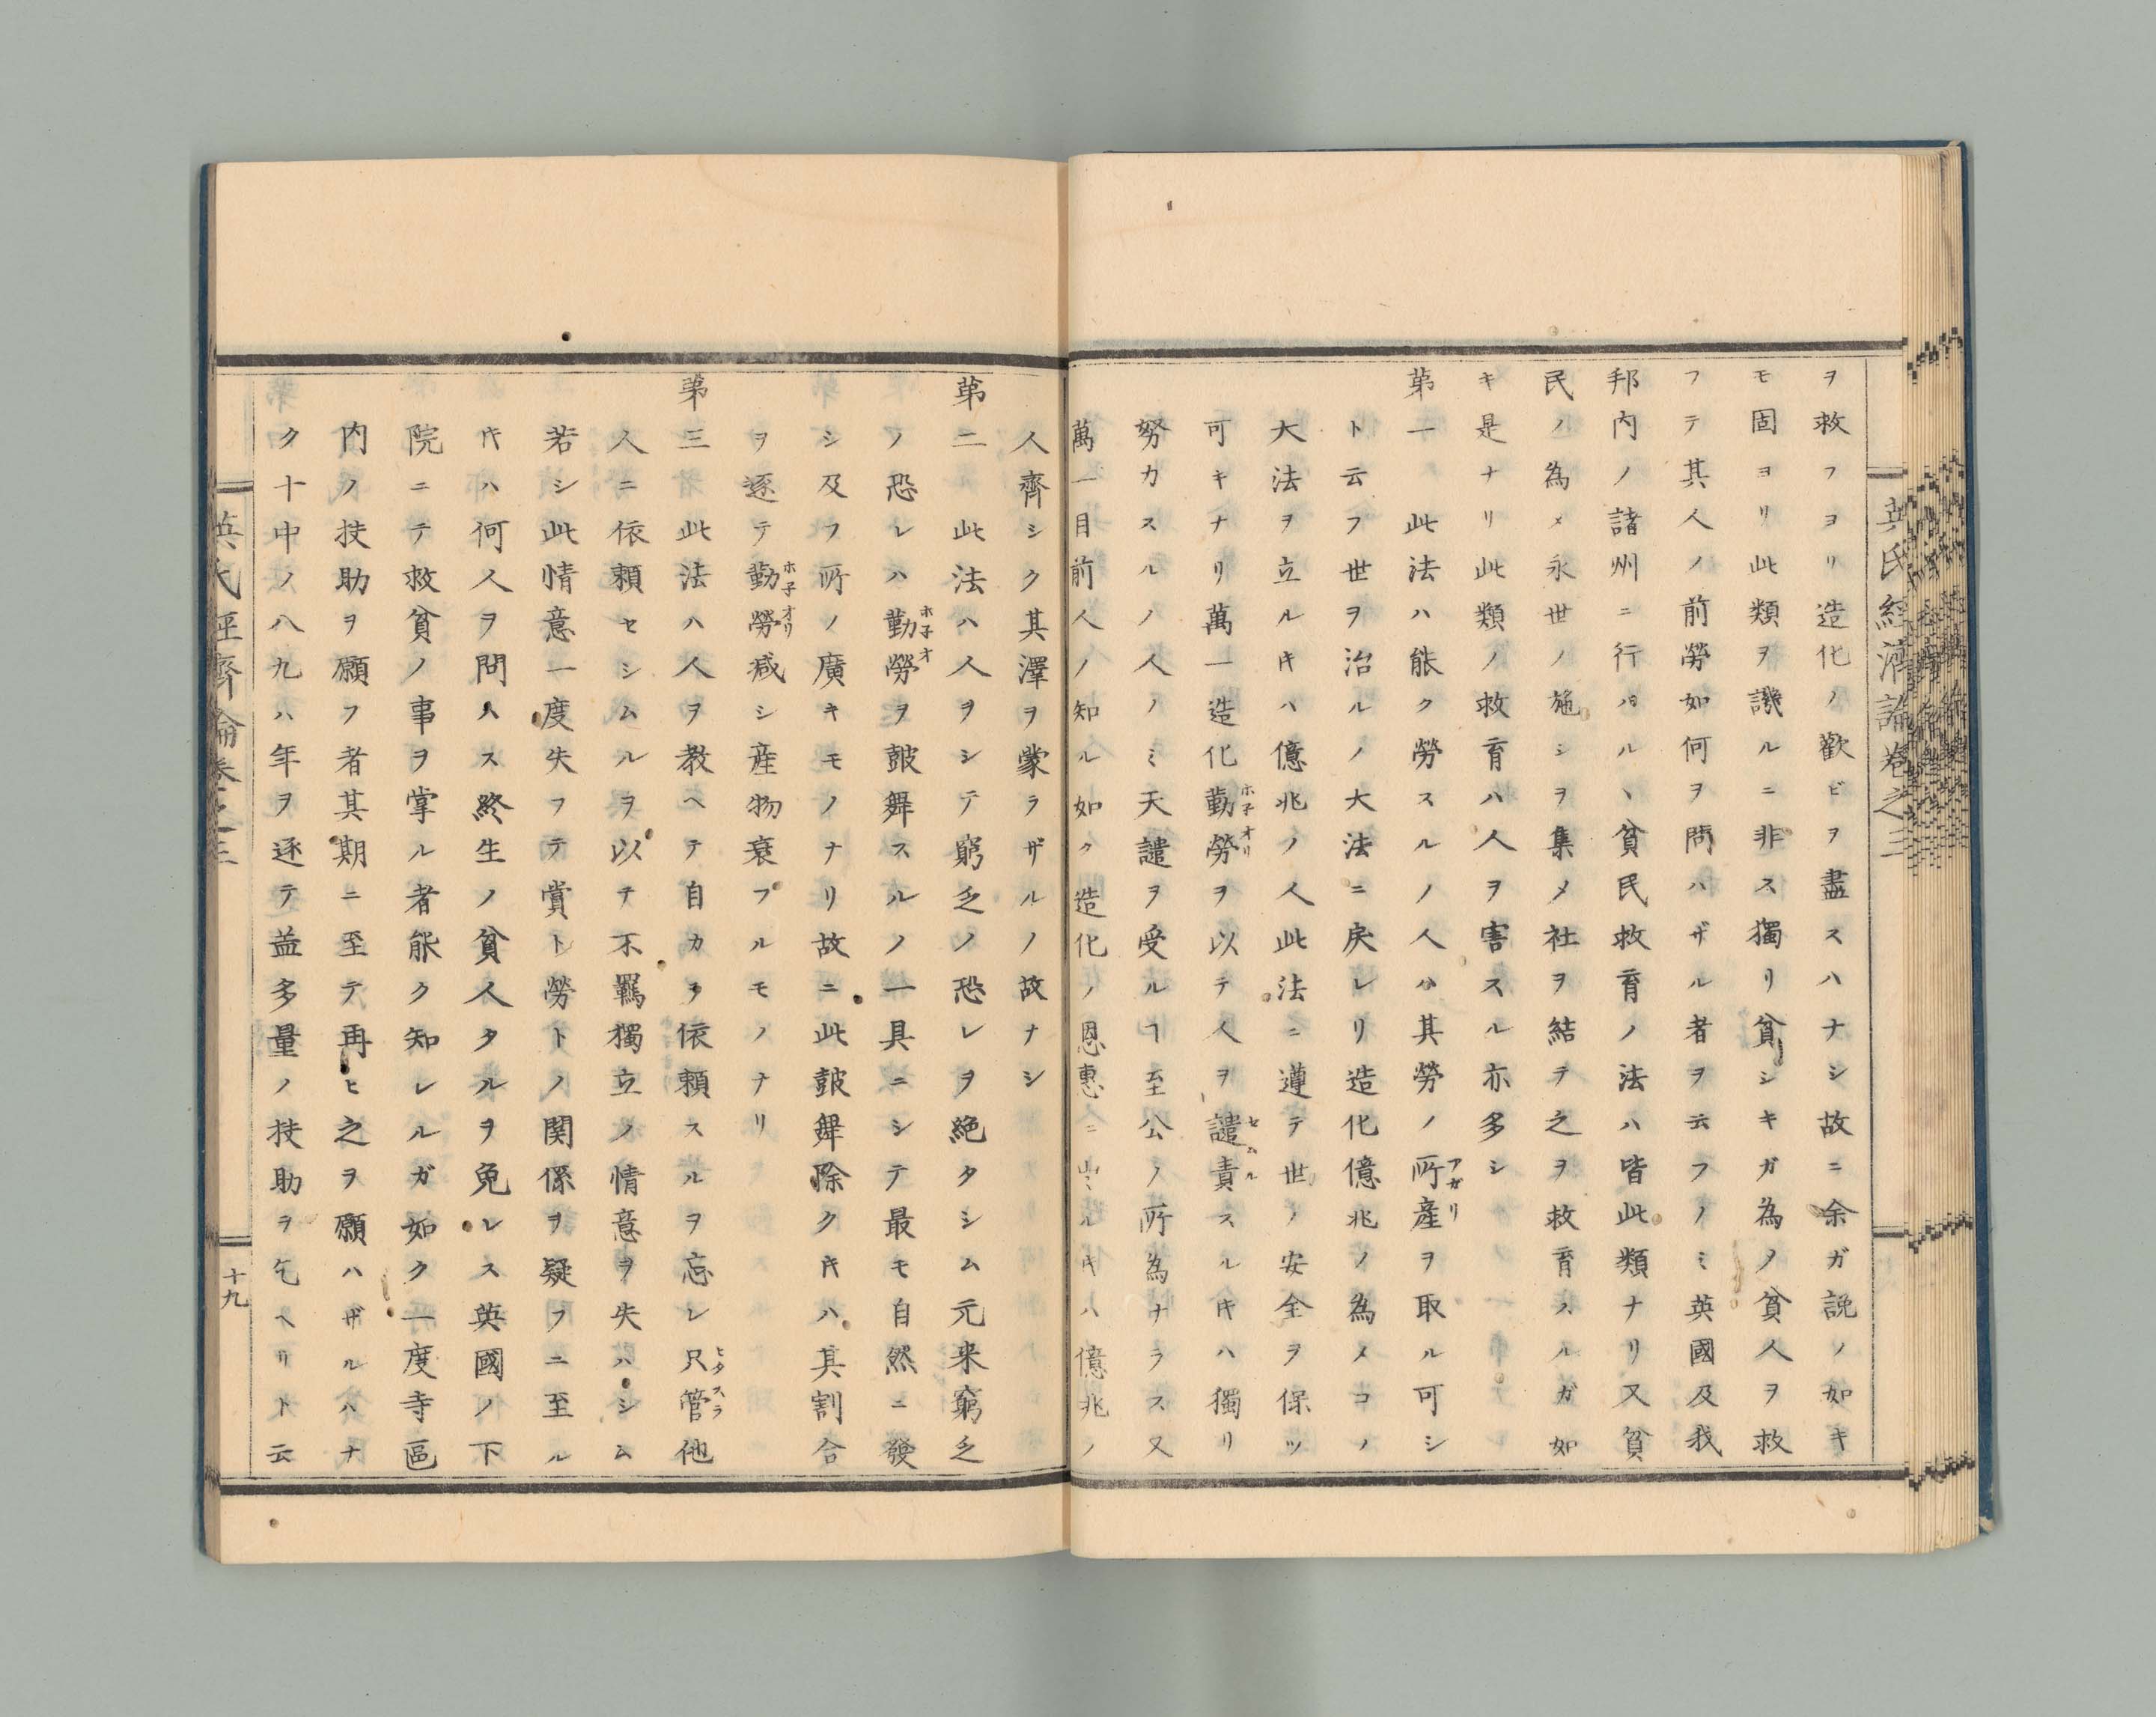 英氏経済論卷之三
ヲ救フヨリ造化ノ歡ビヲ盡スハナシ故ニ余ガ説ノ如キ
モ固ヨリ此類ヲ譏ルニ非ス獨リ貧シキガ為ノ貧人ヲ救
フテ其人ノ前勞如何ヲ問ハザル者ヲ云フノミ英國及我
邦内ノ諸州ニ行ハルヽ貧民救育ノ法ハ皆此類ナリ又貧
民ノ為メ永世ノ施シヲ集メ社ヲ結テ之ヲ救育スルガ如
キ是ナリ此類ノ救育ハ人ヲ害スル亦多シ
第一 此法ハ能ク勞スルノ人ハ其勞ノ所産アガリヲ取ル可シ
ト云フ世ヲ治ルノ大法ニ戻レリ造化億兆ノ為メコノ
大法ヲ立ルキハ億兆ノ人此法ニ遵テ世ノ安全ヲ保ツ
可キナリ萬一造化勤勞ホ子オリヲ以テ人ヲ譴責セムルスルキハ獨リ
努カスルノ人ノミ天譴ヲ受ルヿ至公ノ所為ナラス又
萬一目前人ノ知ル如ク造化ノ恩惠ニ出ルキハ億兆ノ
人齊シク其澤ヲ蒙ラザルノ故ナシ
第二 此法ハ人ヲシテ窮乏ノ恐レヲ絶タシム元来窮乏
ノ恐レハ勤勞ホ子オヲ皷舞スルノ一具ニシテ最モ自然ニ發
シ及フ所ノ廣キモノナリ故ニ此皷舞除クキハ其割合
ヲ逐テ勤勞ホ子オリ減シ産物衰フルモノナリ
第三 此法ハ人ヲ教ヘテ自カヲ依頼スルヲ忘レ只管ヒタスラ他
人ニ依頼セシムルヲ以テ不羈獨立ノ情意ヲ失ハシム
若シ此情意一度失フテ賞ト勞トノ関係ヲ疑フニ至ル
キハ何人ヲ問ハス終生ノ貧人タルヲ免レス英國ノ下
院ニテ救貧ノ事ヲ掌ル者能ク知レルガ如ク一度寺區
内ノ扶助ヲ願フ者其期ニ至テ再ヒ之ヲ願ハザルハナ
ク十中ノ八九ハ年ヲ逐テ益多量ノ扶助ヲ乞ヘリト云
英氏経済論卷之三
十九